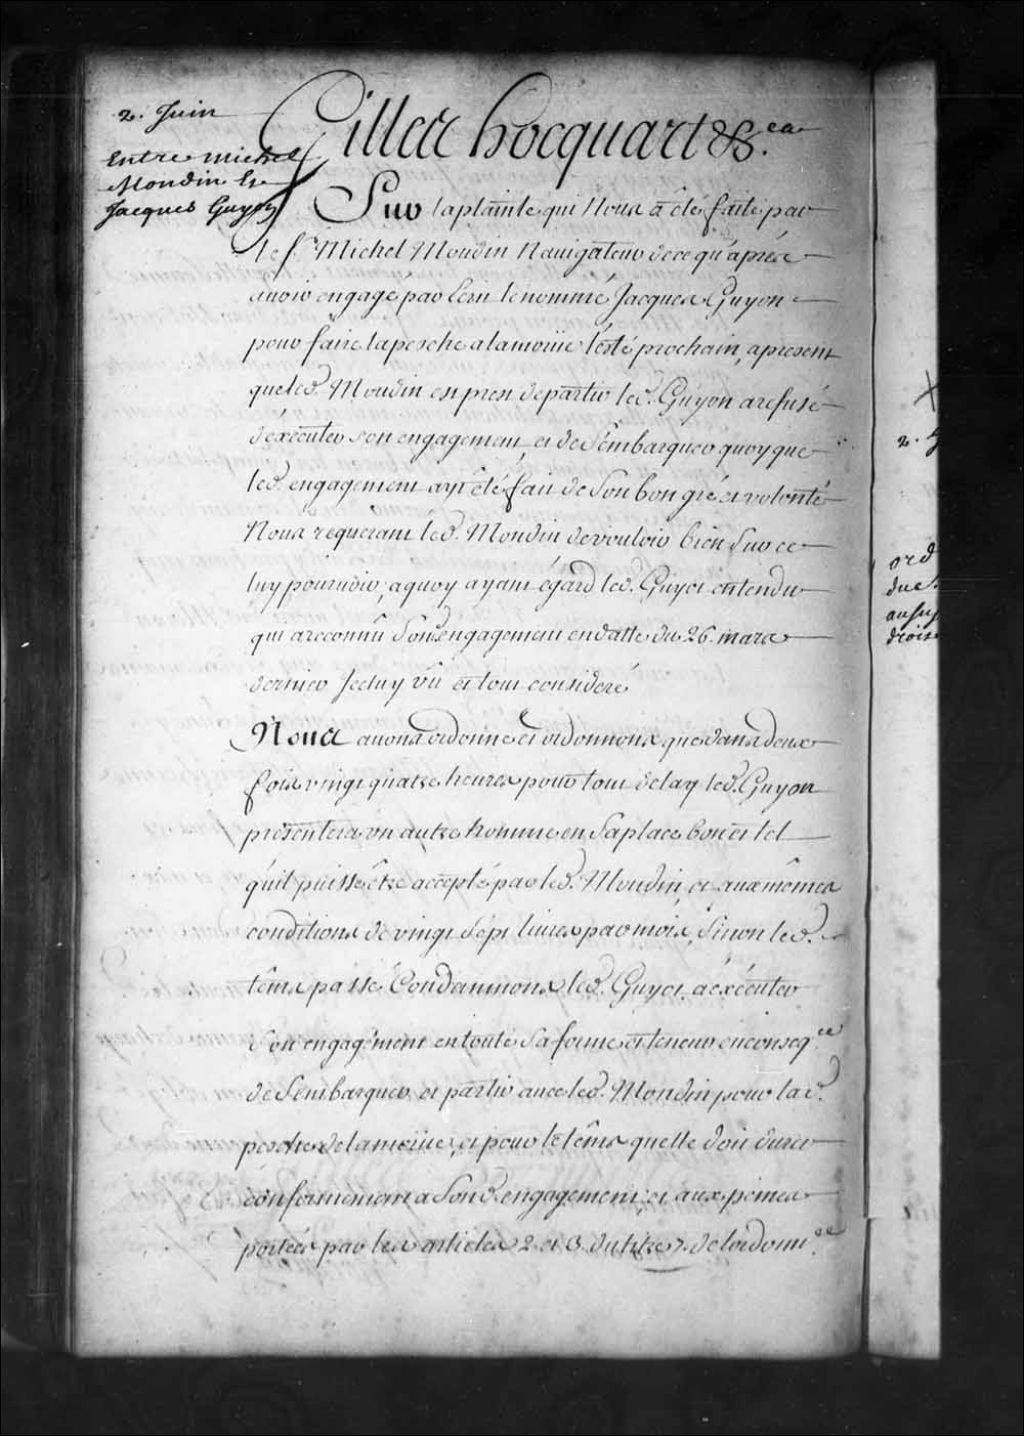 2. Juin
Entre michel
Moudin Et
Jacques Guyon
Gilles hocquart &c.a
Sur la plainte qui Nous a été faite par
le s.r Michel Moudin Navigateur de ce qu'aprés
avoir engagé par Ecrit le nommé Jacques Guyon
pour faire la pesche a la moriie l'esté prochain, apresent
que led. Moudin est prest de partir led. Guyon a refusé
d'éxécuter son engagement, et de S'embarquer quoyque
led. engagement ayt été fait de Son bon gré et volonté
Nous requerant led. Moudin de vouloir bien Sur ce
luy pourvoir, a quoy ayant égard led. Guyon entendu
qui a reconnû Son engagement en datte du 26. mars
dernier Jceluy vû et tout consideré
Nous avons ordonné et ordonnons que dans deux
fois vingt quatre heures pour tout delay led. Guyon
presentera un autre homme en Sa place bon et tel
qu'il puisse être accepté par led. Moudin, et aux mêmes
conditions de vingt Sept livres par mois, Sinon led.
têms passé Condamnons led. Guyon a éxécuter
Son engagement en toute Sa forme et teneur en conseq.ce
de S'embarquer et partir avec led. Moudin pour lad.
pesche de la moriie, et pour le têms quelle doit durer
conformement a Sond. engagement, et aux peines
portées par les articles 2 et 3 du titre 7. de l'ordonn.ce
2. J
ord
due
au suj
drois